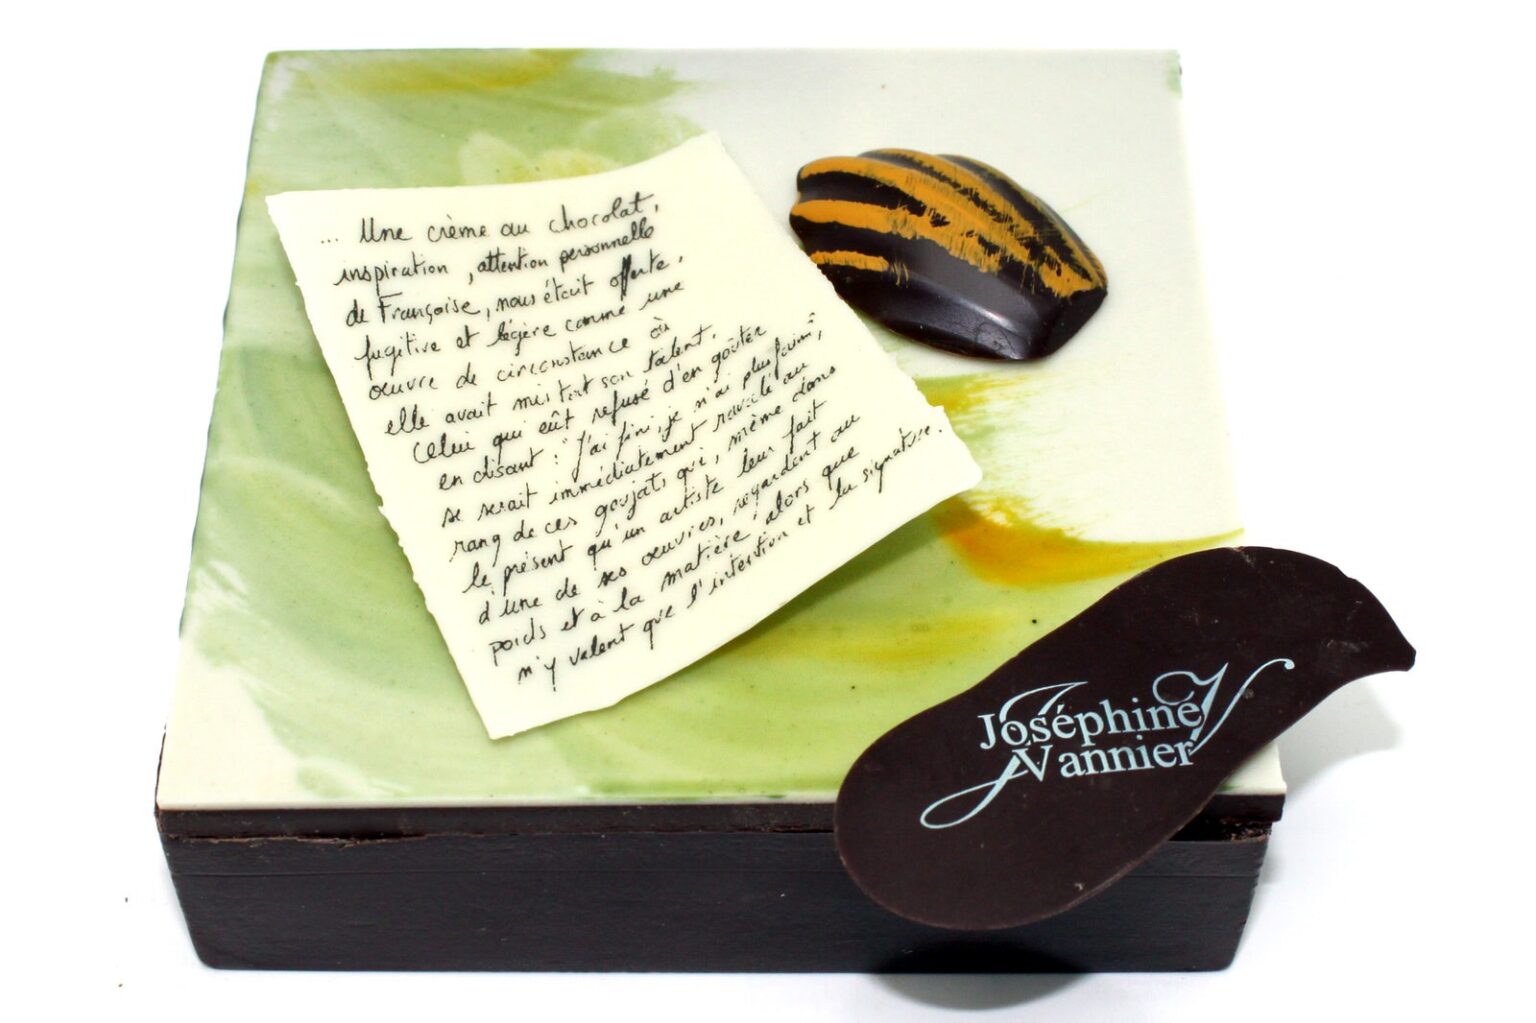 ... Une crème au chocolat,
inspiration, attention personnelle
de Françoise, nous était offerte,
fugitive et légère comme une
œuvre de circonstance où
elle avait mis tout son talent.
Celui qui eût refusé d'en goûter
en disant : "J'ai fini, je n'ai plus faim",
se serait immédiatement ravalé au
rang de ces goujats qui, même dans
le présent qu'un artiste leur fait
d'une de ses œuvres, regardent au
poids et à la matière alors que
n'y valent que l'intention et la signature.
Joséphine
Vannier